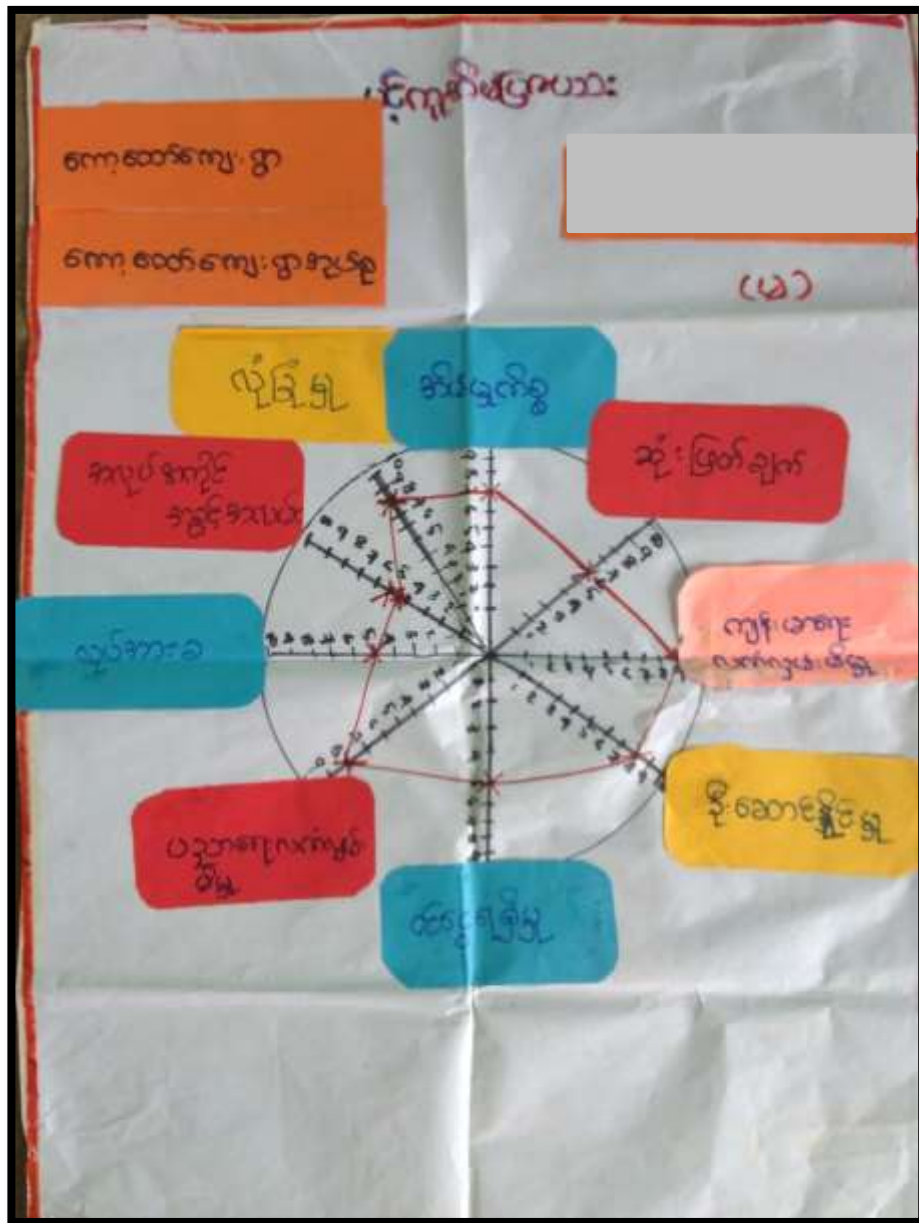 ပင့်ကူအိမ်ပြဇယား
ကော့သော်ကျေးရွာ
ကော့သော်ကျေးရွာအုပ်စု
(မ)
လုံခြုံမှု
အိမ်မှုကိစ္စ
ဆုံးဖြတ်ချက်
အလုပ်အကိုင်
အခွင့်အလမ်း
ကျန်းမာရေး
လက်လှမ်းမီမှု
လုပ်အားခ
ဦးဆောင်နိုင်မှု
ပညာရေးလက်လှမ်း
မီမှု
ဝင်ငွေရရှိမှု